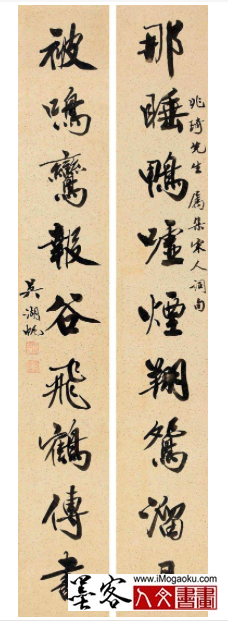 兆琦先生屬集宋人詞句
那睡鴨噓煙翔鴛溜
被鸞報谷飛鶴傳書
吳湖帆
墨客
www.iMogaoku.com
人文書畫